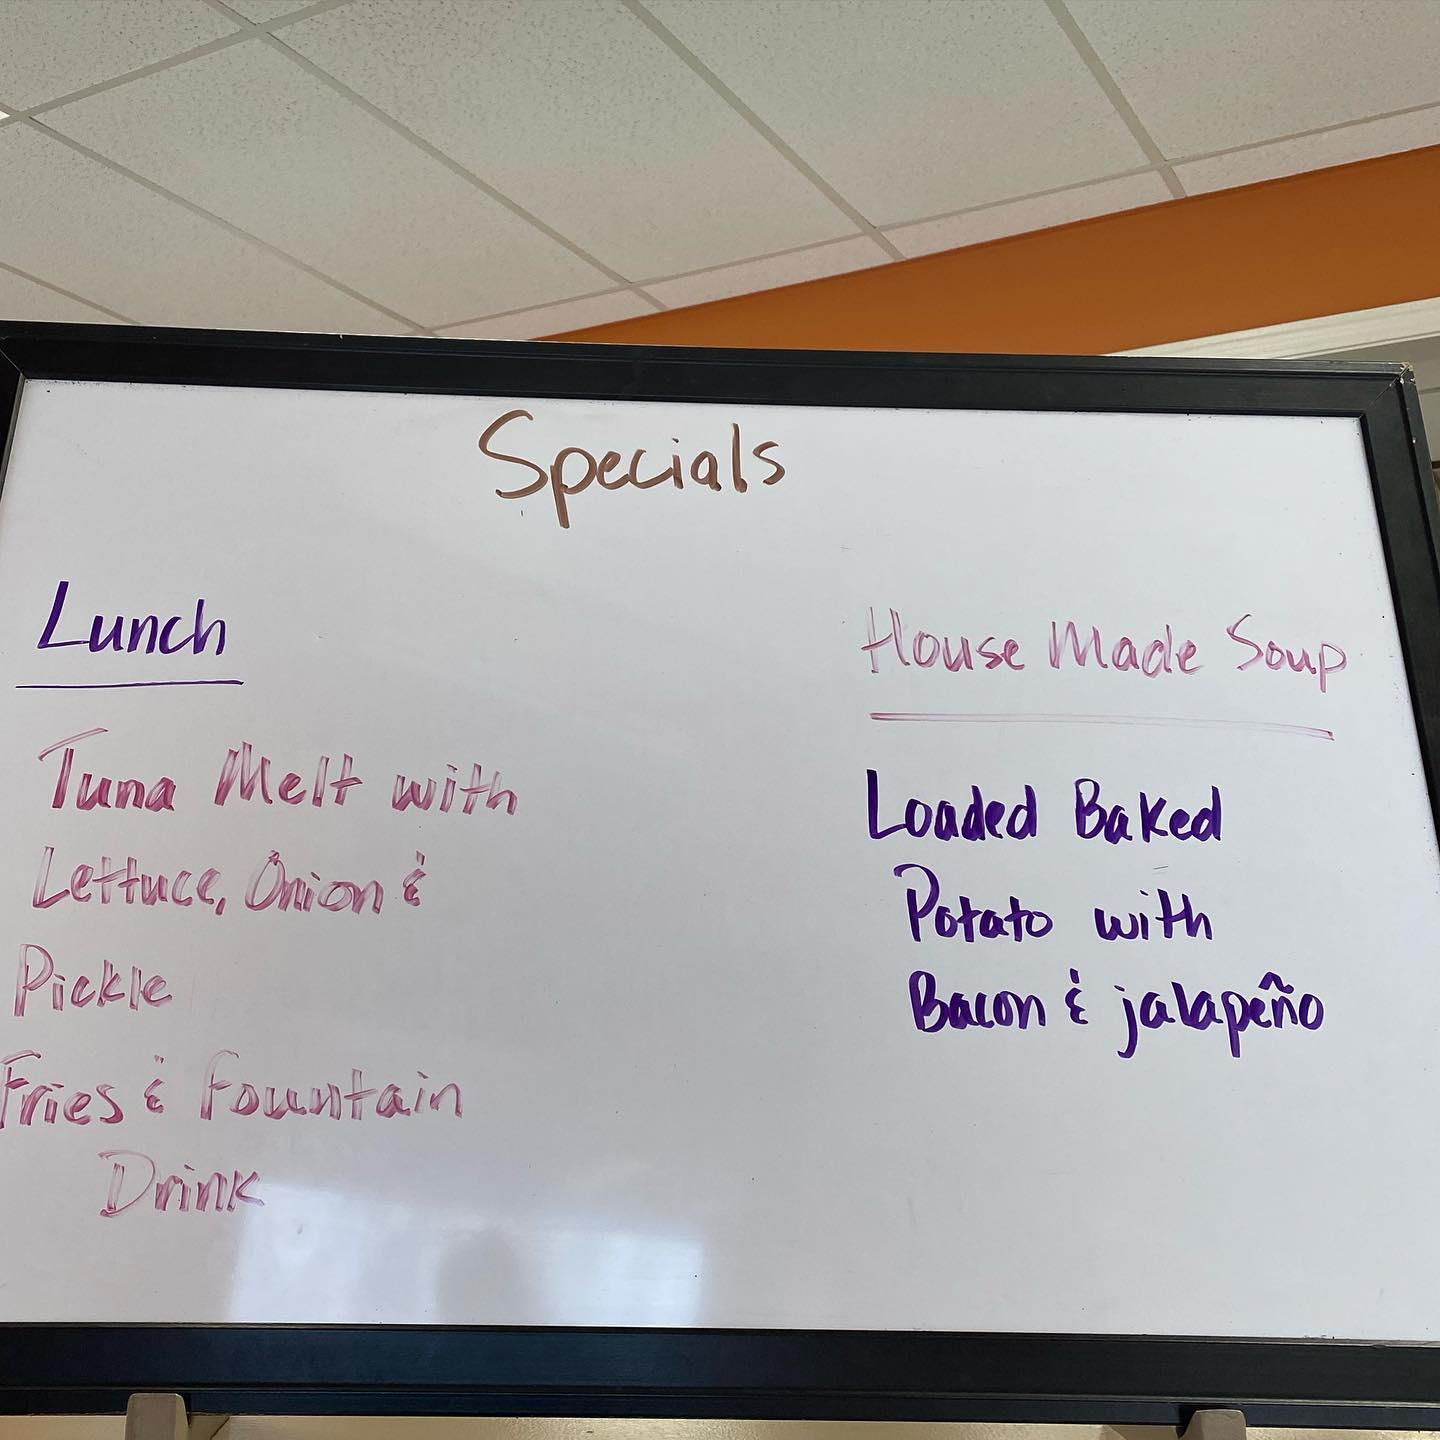 Specials
Lunch
Tuna Melt with
Lettuce, Onion &
Pickle
Fries & Fountain
Drink
House Made Soup
Loaded Baked
Potato with
Bacon & jalapeño